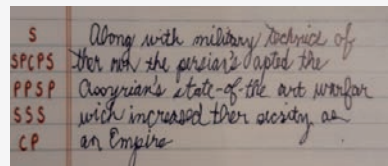 S Along with military technics of
SPCPS ther own the persian's apted the
PPSP Assyrian's state-of-the art warfar
SSS wich increased ther sicsity as
CP an Empire